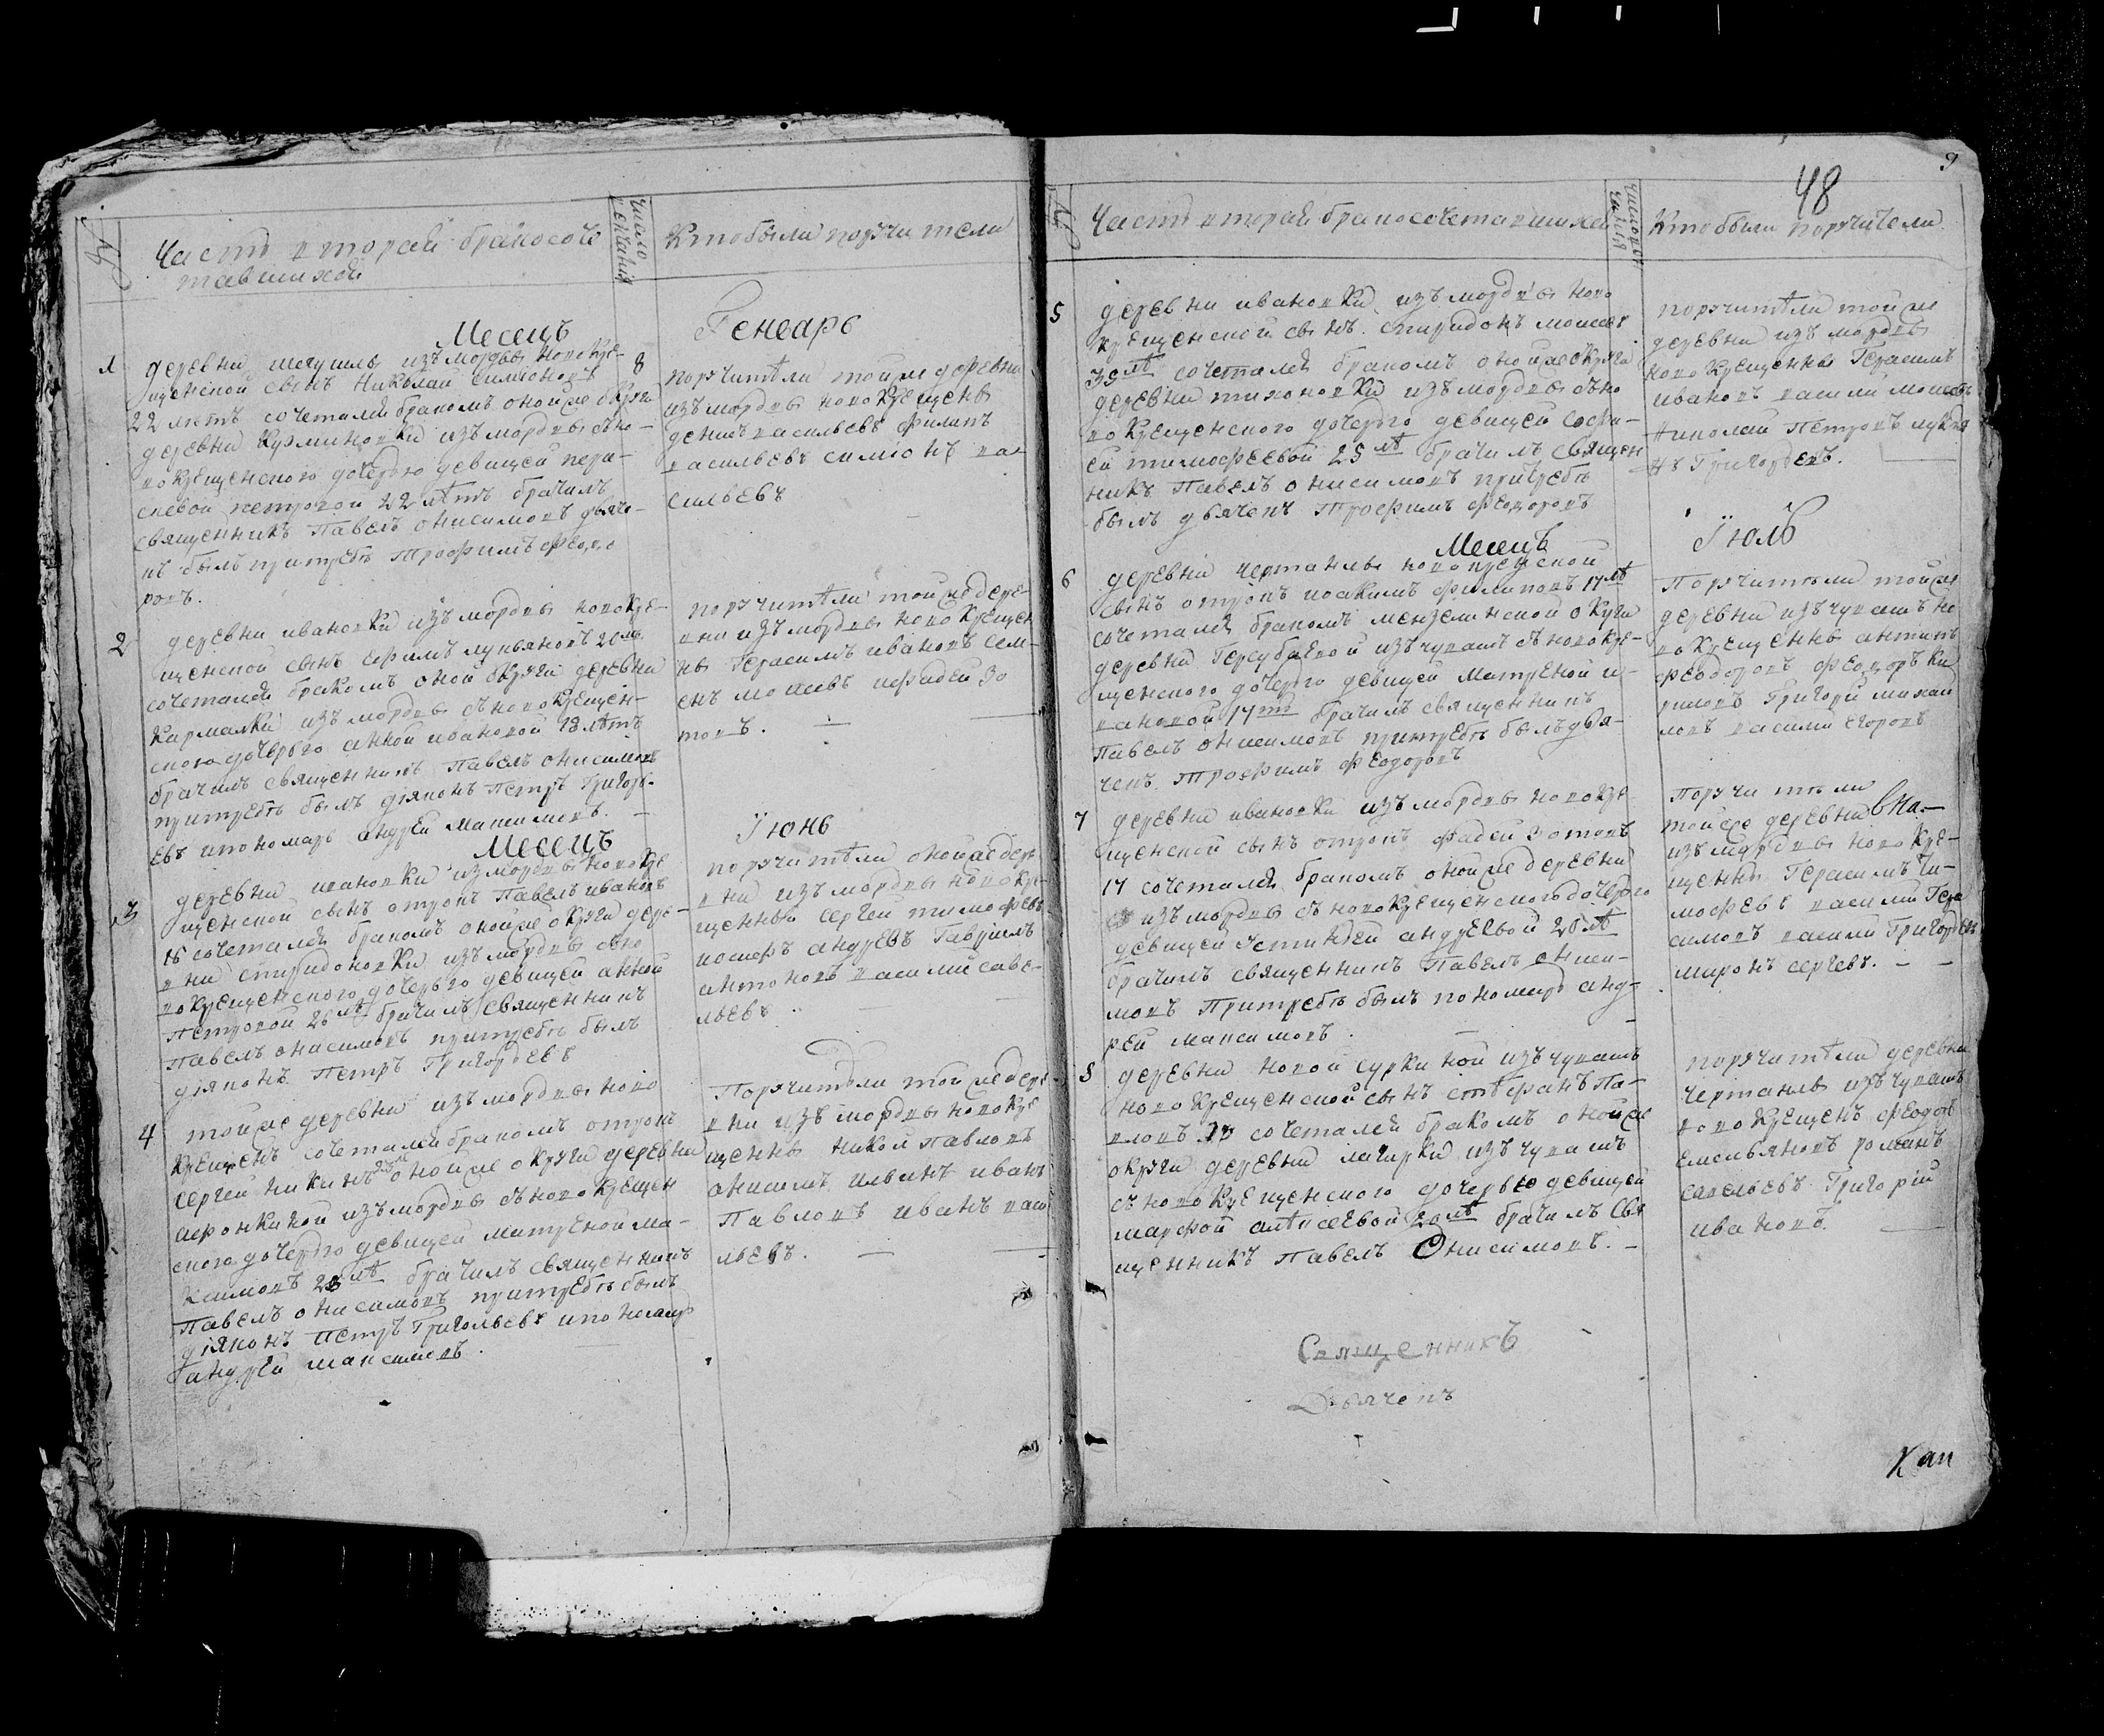 №
Часть вторай бракосоче
тавшихсй
число
венчания
Кто были поручители
Месецъ
Генварь
1
деревни изъ мордвы новокре-
щенской сынъ Николай Симионовъ
8
22 летъ сочетался бракомъ оной же округи
деревни Кузминовки изъ мордвы съ но-
вокрещенского дочерью девицей
петровой 22 лѣтъ брачилъ
священникъ Павелъ Онисимовъ дьяче-
къ былъ притребѣ Трофимъ Феодо
ровъ.
поручитѣли той же деревни
изъ мордвы новокрещены
денисъ васильевъ филипъ
васильевъ симионъ ва-
сильевъ
2
деревни ивановки изъ мордвы новокре-
щенской сынъ Ефимъ лукьяновъ 20 лѣ.
сочетался бракомъ оной округи деревни
Кармалки изъ мордвы съ новокрещен-
ского дочерью анной ивановой 18 лѣтъ
брачилъ священникъ Павелъ Онисимовъ
притребѣ былъ діяконъ Петръ Григорь-
евъ и пономарь андрей Максимовъ.
поручитѣли той же дере-
вни изъ мордвы новокрещен
ны Герасимъ ивановъ сем-
енъ моисевъ ифадей Зо
товъ.
Месецъ
Іюнь
3
деревни ивановки изъ мордвы новокре
щенской сынъ отрокъ Павелъ ивановъ
16 сочетался бракомъ оной же округи дере-
вни спиридоновки изъ мордвы съ но
вокрещенского дочерью девицей анной
Петровой 26 лѣ брачилъ священникъ
Павелъ онисимовъ притребѣ былъ
діяконъ Петръ Григорьевъ
поручитѣли оной же дере
вни изъ мордвы новокре-
щенны Сергей тимофѣевъ
иосифъ андреевъ Гаврилъ
антоновъ васили саве-
льевъ
4
той же деревни изъ мордвы ново
крещенъ сочеталсй бракомъ отрокъ
Сергей оной же округи деревни
афонкиной изъ мордвы съ новокрещен
ского дочерью девицей матреной ма-
ксимовъ 23 лѣ брачилъ священникъ
Павелъ онисимовъ притребѣ былъ
діяконъ Петръ Григорьевъ и пономарь
андрей максимовъ.
Поручитѣли той же дере
вни изъ мордвы новокре
щенны никол Павловъ
онисимъ иванъ
Павловъ иванъ васи
льевъ.
48
9
№
Часть вторай бракосочетавшихсй
Кто были поручители
5
деревни ивановки изъ мордвы ново
крещенской сынъ спиридонъ моисевъ
39 лѣ сочетался бракомъ оной же округи
деревни тихоновки изъ мордвы съ но
вокрещенского дочерью девицей софи-
ей тимофеевой 25 лѣ брачилъ священ
никъ Павелъ онисимовъ притребѣ
былъ дьячекъ Трофимъ Феодоровъ
поручитѣли той же
деревни изъ мордвы
новокрещенны Герасимъ
ивановъ васили моисевъ
Николай Петровъ
Григорьевъ.
Месецъ
Іюль
6
деревни чертанлы новокрещеской
сынъ отрокъ иоакимъ филиповъ 17 лѣ
сочетался бракомъ мензелинской округи
деревни изъ чувашъ съ новокре-
щенского дочерью девицей матреной и-
вановой 17 брачилъ священникъ
Павелъ онисимовъ притребѣ былъ дья-
чекъ Трофимъ Феодоровъ
Поручители той же
деревни изъ чувашъ но
вокрещенны антипъ
феодоровъ феодоръ ки
риловъ Григори михаи
ловъ васили егоровъ
7
деревни ивановки изъ мордвы новокре
щенской сынъ отрокъ фадей зотовъ
17 сочетался бракомъ оной же деревни
изъ мордвы съ новокрещенского дочерью
девицей Устиньей андреевой 20 лѣ
брачилъ священникъ Павелъ Ониси-
мовъ Притребѣ былъ пономарь анд-
рей максимовъ.
Поручители
той же деревни
изъ мордвы новокре-
щенны Герасимъ ти-
мофеевъ васили Гера
симовъ васили Григорьевъ
миронъ сергевъ.
8
деревни новой суркиной изъ чувашъ
новокрещенской сынъ стѣфанъ Па-
вловъ сочетался бракомъ оной же
округи деревни изъ чувашъ
съ новокрещенского дочерью девицей
марфой алѣксеевой 20 лѣ брачилъ Свя
щенникъ Павелъ Онисимовъ.
поручитѣли деревни
Чертанлы изъ чувашъ
новокрещенъ феодоръ
Емельяновъ романъ
савельевъ Григорій
ивановъ.
Священникъ
Дьячекъ